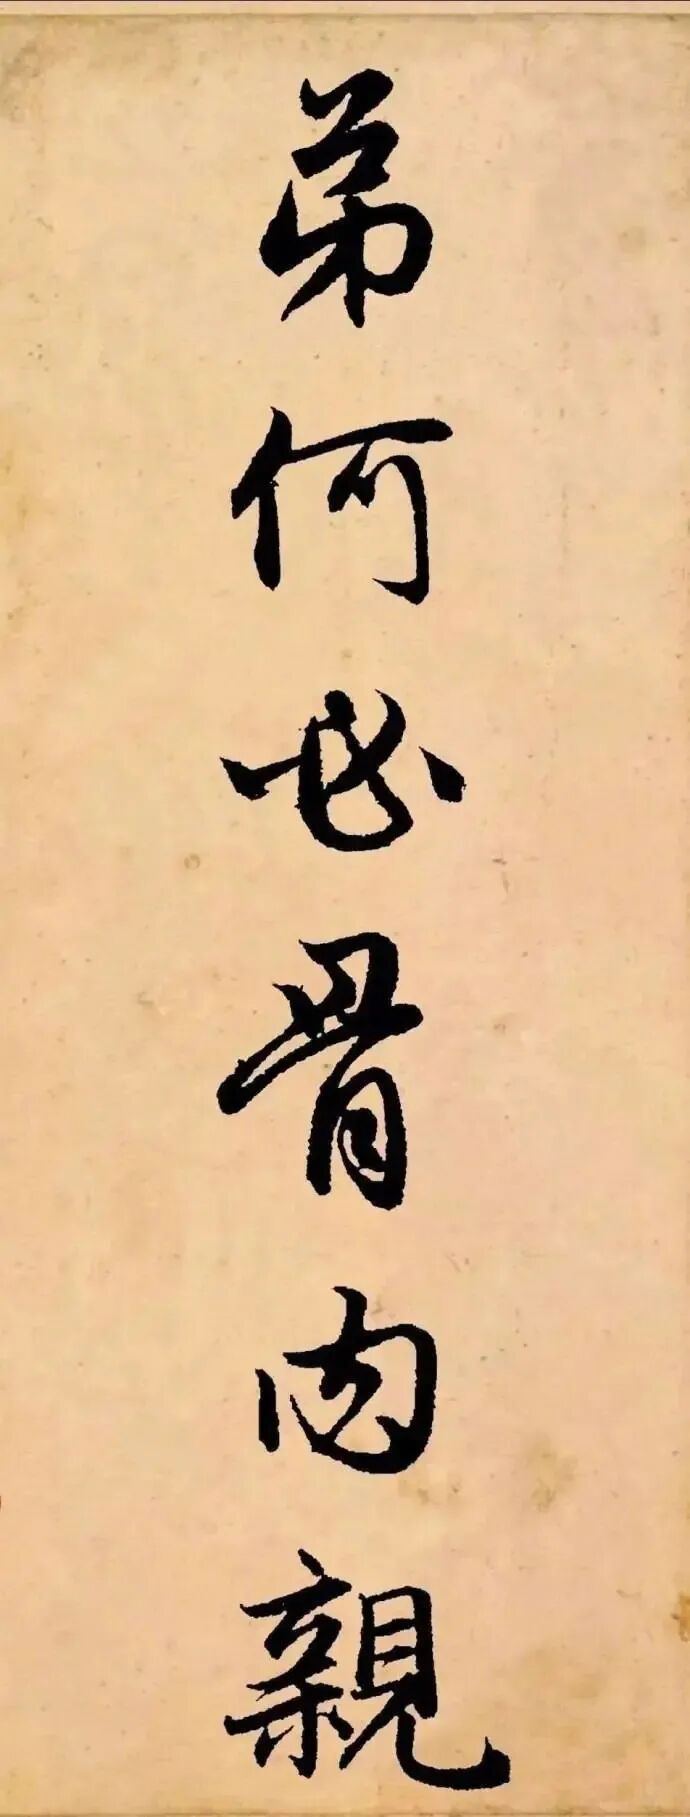 弟何必骨肉親